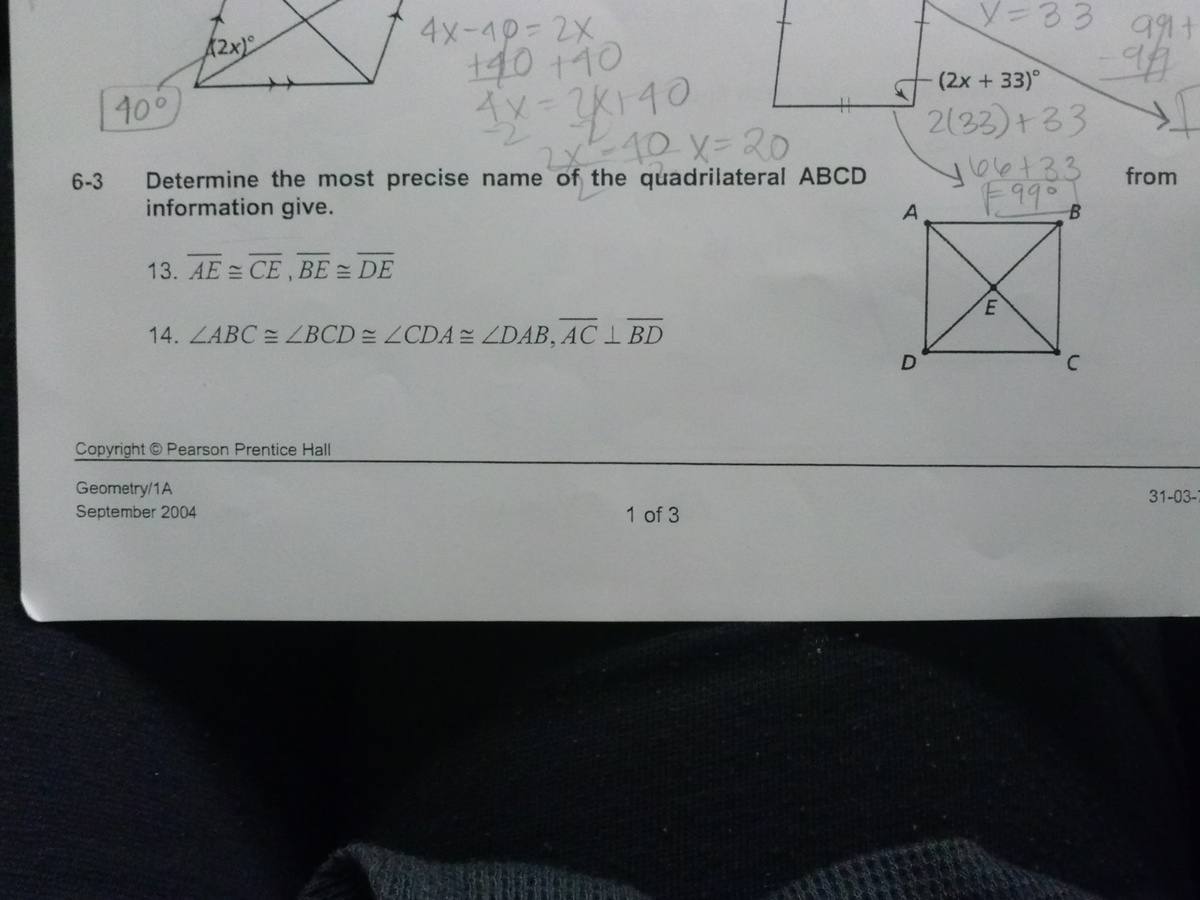 (2x)°
40°
4x-40 = 2x
+40 +40
4x = 2x+40
-2
2x = 40 x = 20
2
y = 33
99+
-99
(2x + 33)°
2(33)+33
66+33
= 99°
6-3 Determine the most precise name of the quadrilateral ABCD from
information give.
13. AE ≅ CE , BE ≅ DE
14. ∠ABC ≅ ∠BCD ≅ ∠CDA ≅ ∠DAB, AC ⊥ BD
A B
E
D C
Copyright © Pearson Prentice Hall
Geometry/1A
September 2004
1 of 3
31-03-